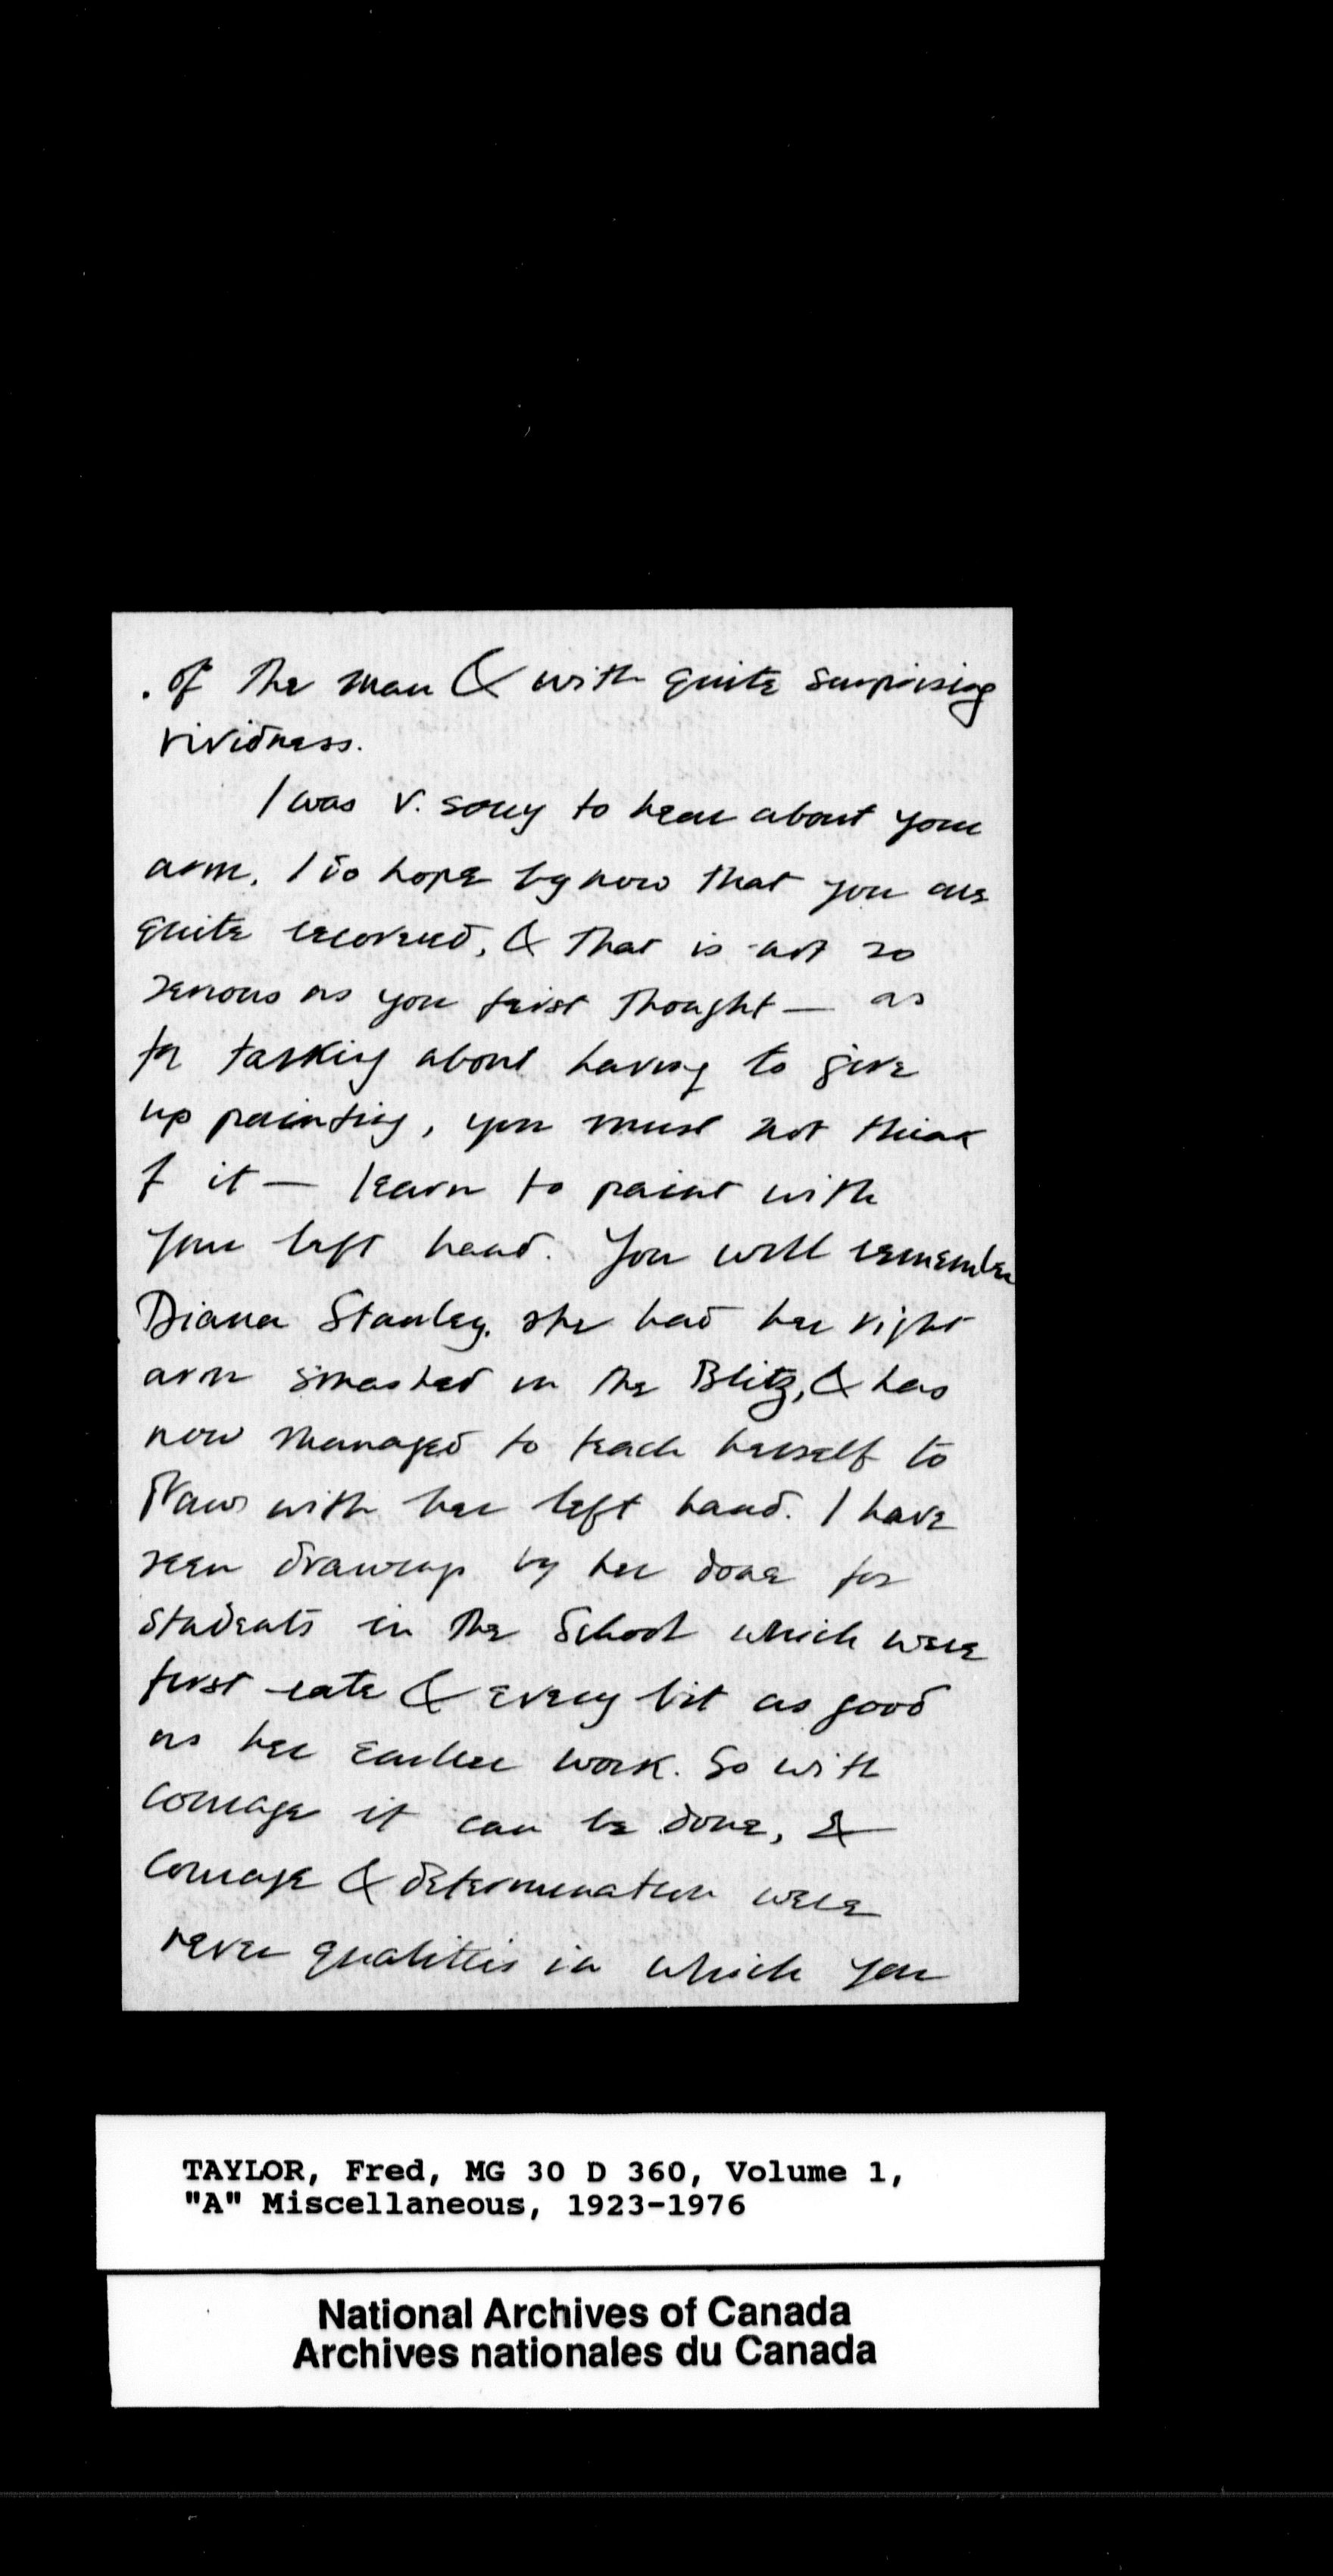 of the man & with quite surprising
vividness.
I was v. sorry to hear about your
arm. I do hope by now that you are
quite recovered, & that is not so
serious as you first thought — as
for talking about having to give
up painting, you must not think
of it — learn to paint with
your left hand. You will remember
Diana Stanley. she had her right
arm smashed in the Blitz, & has
now managed to teach herself to
draw with her left hand. I have
seen drawings by her done for
students in the School which were
first rate & every bit as good
as her earlier work. So with
courage it can be done, &
courage & determination were
never qualities in which you
TAYLOR, Fred, MG 30 D 360, Volume 1,
"A" Miscellaneous, 1923-1976
National Archives of Canada
Archives nationales du Canada